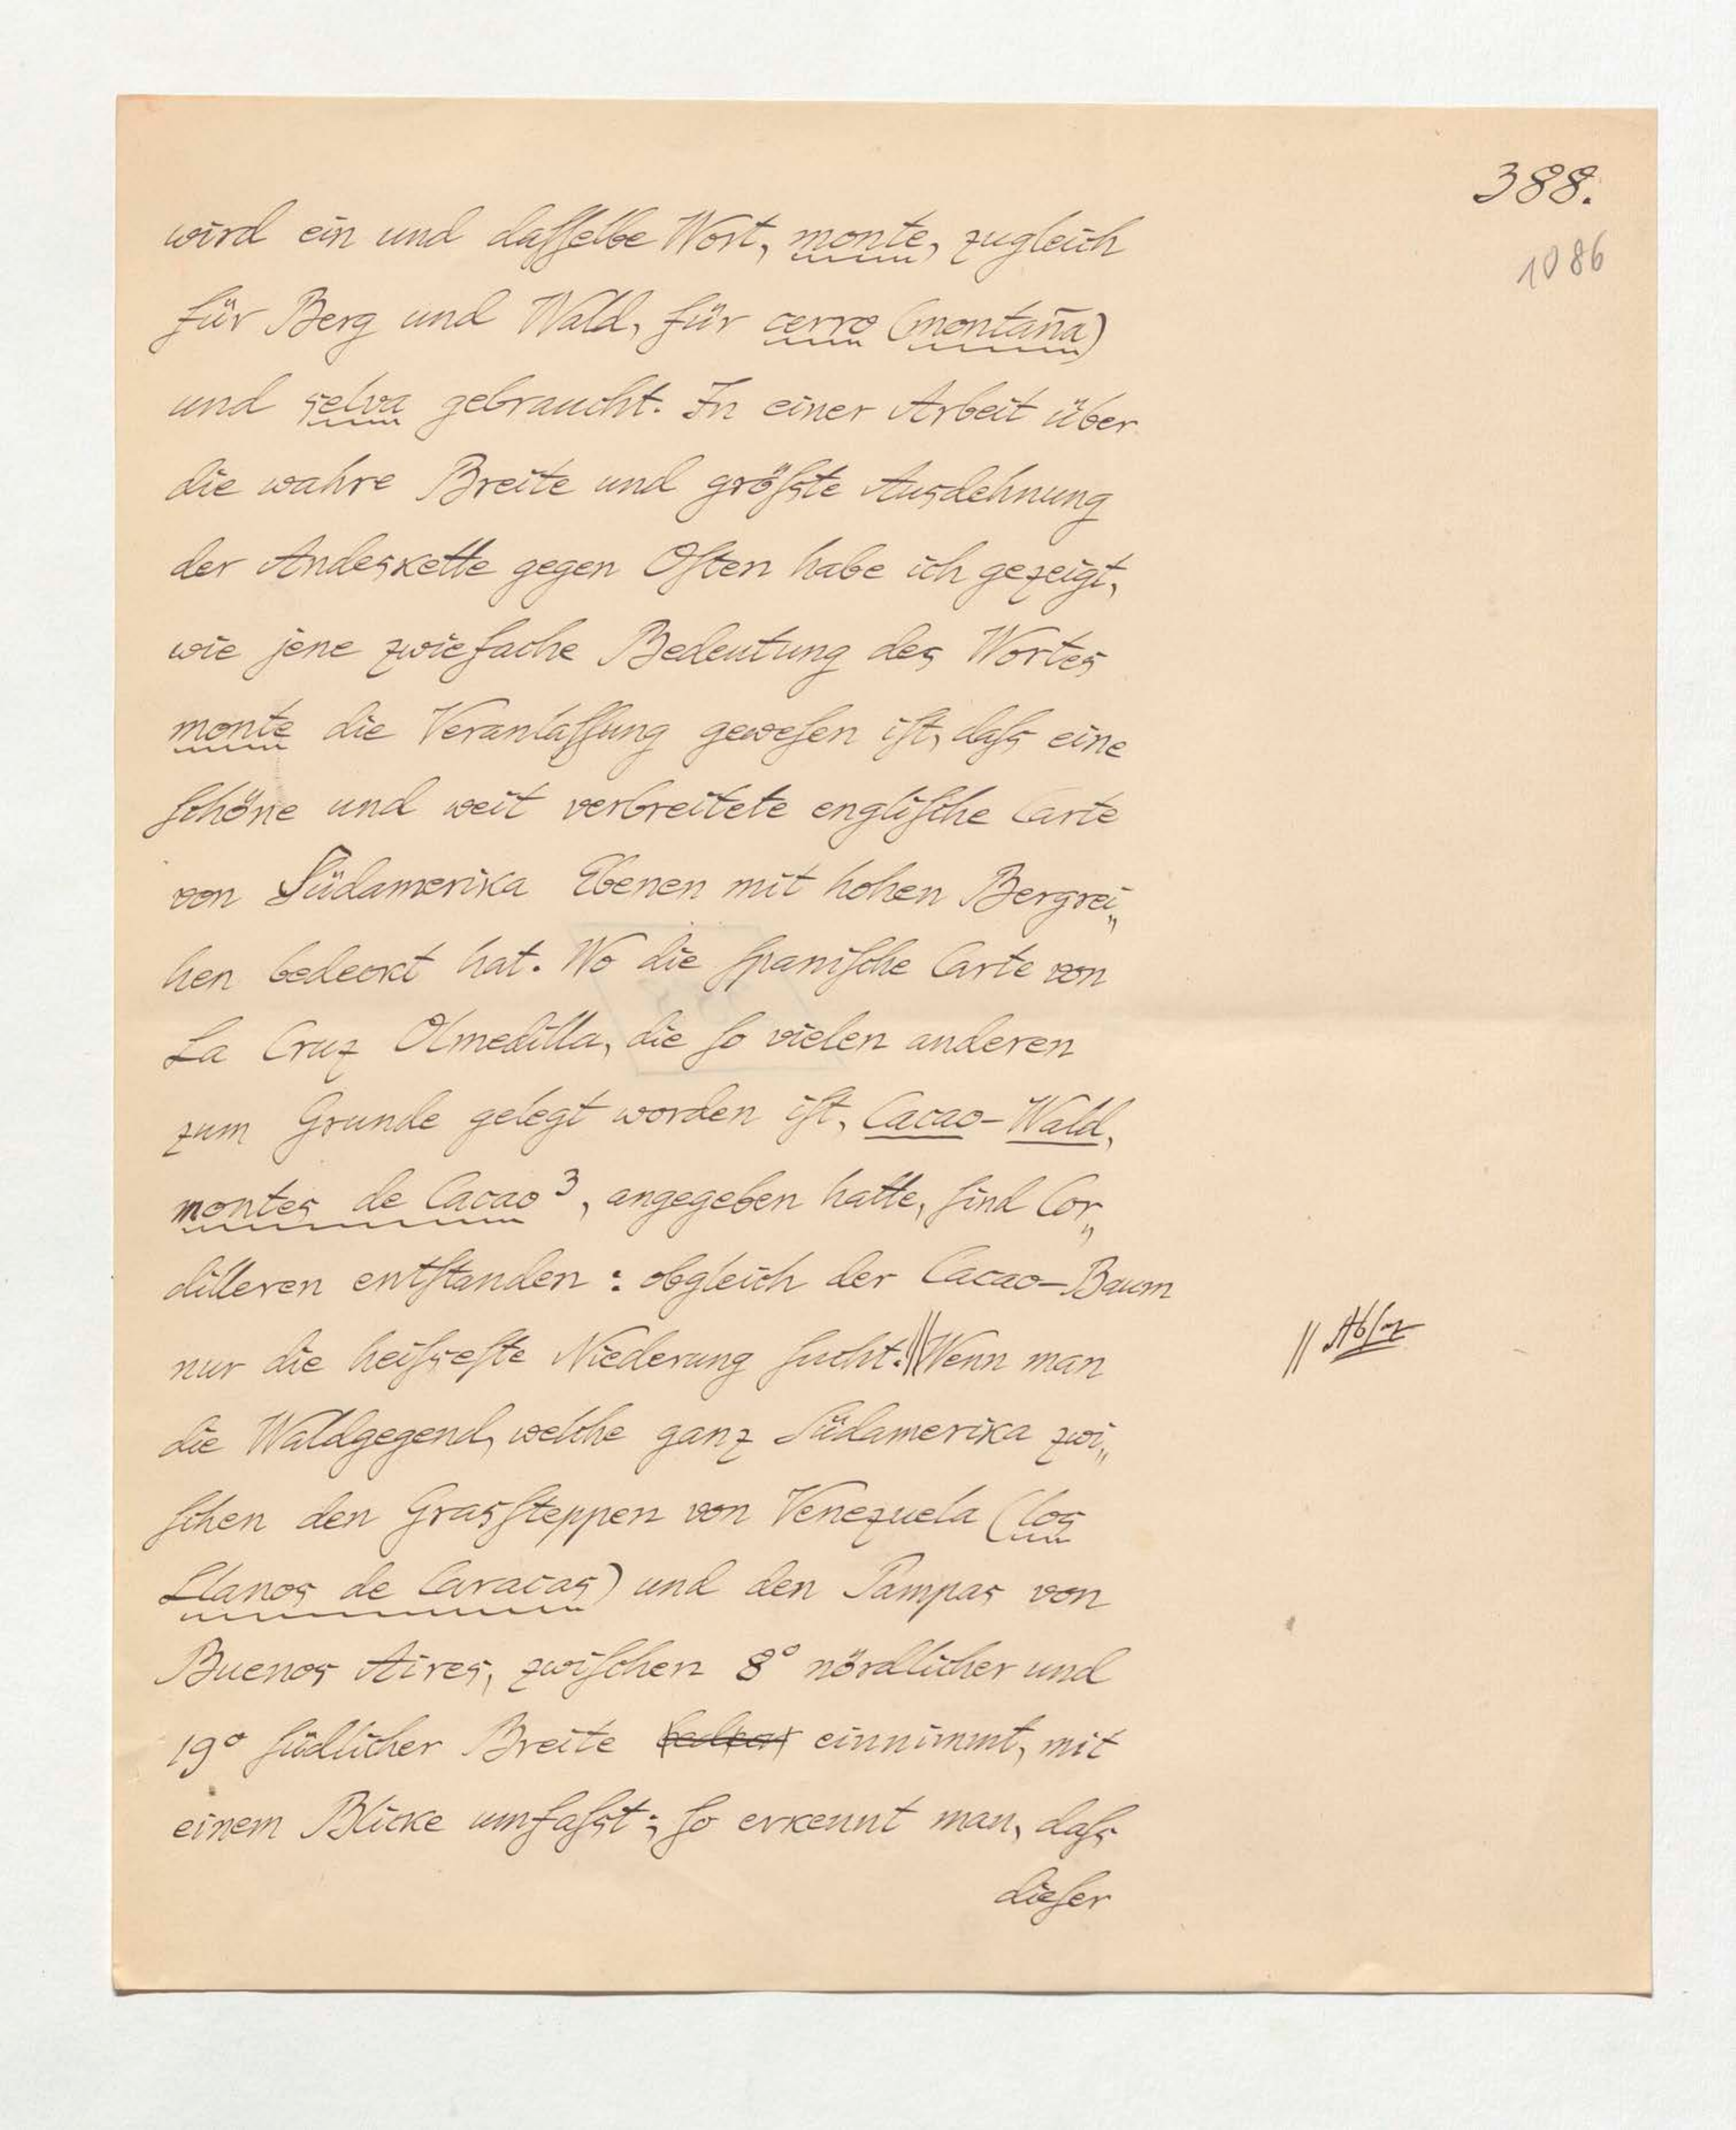 388.
1086
wird ein und daſſelbe Wort, monte, zugleich
für Berg und Wald, für cerro (montaña)
und selva gebraucht. In einer Arbeit über
die wahre Breite und größte Ausdehnung
der Andeskette gegen Oſten habe ich gezeigt,
wie jene zwiefache Bedeutung des Wortes
monte die Veranlaſſung geweſen iſt, daſs eine
ſchöne und weit verbreitete engliſche Carte
von Südamerika Ebenen mit hohen Bergrei„
hen bedeckt hat. Wo die ſpaniſche Carte von
La Cruz Olmedilla, die ſo vielen anderen
zum Grunde gelegt worden iſt, Cacao-Wald,
montes de Cacao³, angegeben hatte, ſind Cor„
dilleren entſtanden: obgleich der Cacao-Baum
nur die heiſseſte Niederung ſucht.||Wenn man
|| Abſ
die Waldgegend, welche ganz Südamerika zwi„
ſchen den Grasſteppen von Venezuela (los
Llanos de Caracas) und den Pampas von
Buenos Aires, zwiſchen 8° nördlicher und
19° ſüdlicher Breite einnimmt, mit
einem Blicke umfaſst; ſo erkennt man, daſs
dieſer